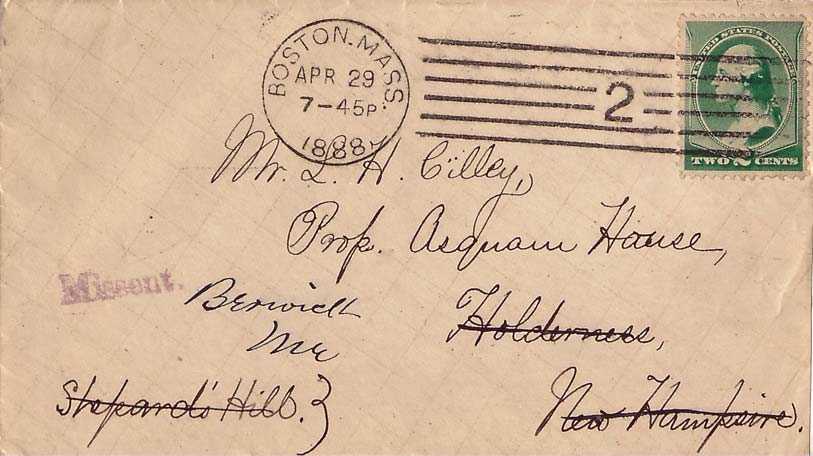 BOSTON.MASS.
APR 29
7-45P
1888
2
UNITED STATES POSTAGE
TWO 2 CENTS
Mr. L. H. Cilley,
Prop. Asquam House,
Missent.
Berwick
Me
Holderness,
Shepard's Hill.
New Hampsire.